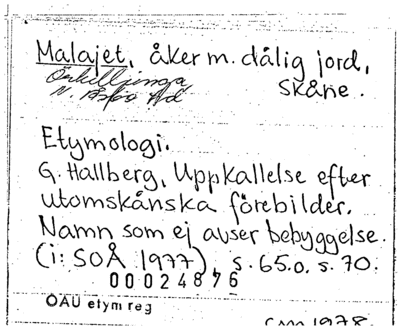 Malajet, åker m. dålig jord,
Örkelljunga
Skåne.
N. Åsbo hd
Etymologi.
G. Hallberg, Uppkallelse efter
utomskånska förebilder.
Namn som ej avser bebyggelse.
(i: SOÅ 1977), s. 65 o. s. 70.
00024876
OAU etym reg
1978.